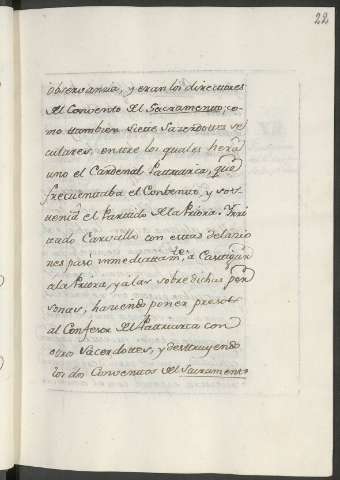 22
observancia, y eran los directores
del Convento del Sacramento, co-
mo tambien siete Sacerdotes se
culares, entre los quales hera
uno el Cardenal Patriarca, que
frecuentaba el Convento, y sos-
tenia el Partido de la Priora. Irri
tado Carvallo con estas delacio
nes pasó inmediatam.te a Castigar
a la Priora, y a las sobre dichas per
sonas, haciendo poner presos
al Confesor del Patriarca con
otro Sacerdotes, y destruyendo
los dos Conventos del Sacramento